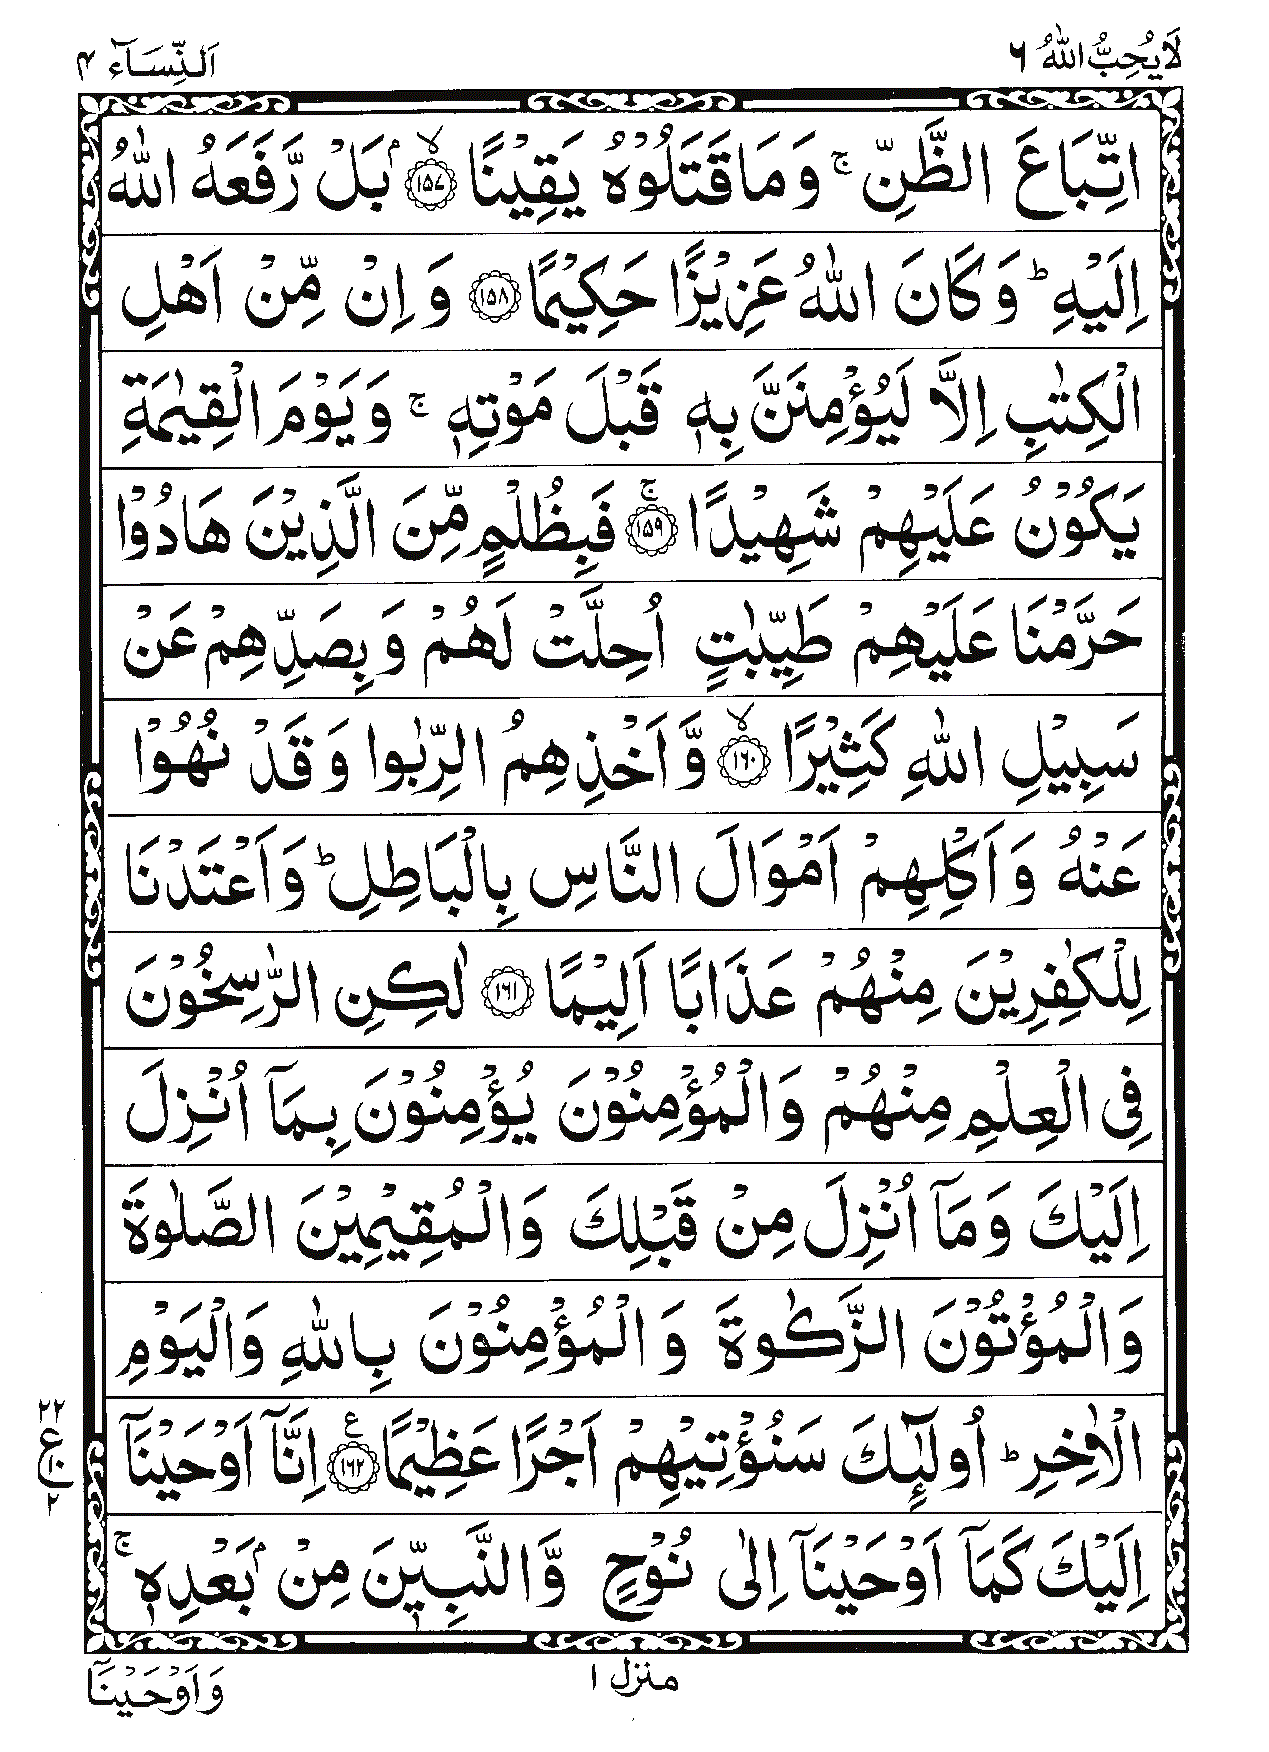 لَا يُحِبُّ اللّٰهُ ٦
اَلنِّسَآء ٤
اتِّبَاعَ الظَّنِّ ۚ وَمَا قَتَلُوْهُ يَقِيْنًۢا ۙ﴿١٥٧﴾ بَلْ رَّفَعَهُ اللّٰهُ
اِلَيْهِ ؕ وَكَانَ اللّٰهُ عَزِيْزًا حَكِيْمًا ﴿١٥٨﴾ وَاِنْ مِّنْ اَهْلِ
الْكِتٰبِ اِلَّا لَيُؤْمِنَنَّ بِهٖ قَبْلَ مَوْتِهٖ ۚ وَيَوْمَ الْقِيٰمَةِ
يَكُوْنُ عَلَيْهِمْ شَهِيْدًا ۚ﴿١٥٩﴾ فَبِظُلْمٍ مِّنَ الَّذِيْنَ هَادُوْا
حَرَّمْنَا عَلَيْهِمْ طَيِّبٰتٍ اُحِلَّتْ لَهُمْ وَبِصَدِّهِمْ عَنْ
سَبِيْلِ اللّٰهِ كَثِيْرًا ۙ﴿١٦٠﴾ وَّاَخْذِهِمُ الرِّبٰوا وَقَدْ نُهُوْا
عَنْهُ وَاَكْلِهِمْ اَمْوَالَ النَّاسِ بِالْبَاطِلِ ؕ وَاَعْتَدْنَا
لِلْكٰفِرِيْنَ مِنْهُمْ عَذَابًا اَلِيْمًا ﴿١٦١﴾ لٰكِنِ الرّٰسِخُوْنَ
فِى الْعِلْمِ مِنْهُمْ وَالْمُؤْمِنُوْنَ يُؤْمِنُوْنَ بِمَآ اُنْزِلَ
اِلَيْكَ وَمَآ اُنْزِلَ مِنْ قَبْلِكَ وَالْمُقِيْمِيْنَ الصَّلٰوةَ
وَالْمُؤْتُوْنَ الزَّكٰوةَ وَالْمُؤْمِنُوْنَ بِاللّٰهِ وَالْيَوْمِ
الْاٰخِرِ ؕ اُولٰٓئِكَ سَنُؤْتِيْهِمْ اَجْرًا عَظِيْمًا ﴿١٦٢﴾ ع اِنَّآ اَوْحَيْنَآ
٢٢
ع
١٠
٢
اِلَيْكَ كَمَآ اَوْحَيْنَآ اِلٰى نُوْحٍ وَّالنَّبِيّٖنَ مِنْۢ بَعْدِهٖ ۚ
منزل ١
وَاَوْحَيْنَآ